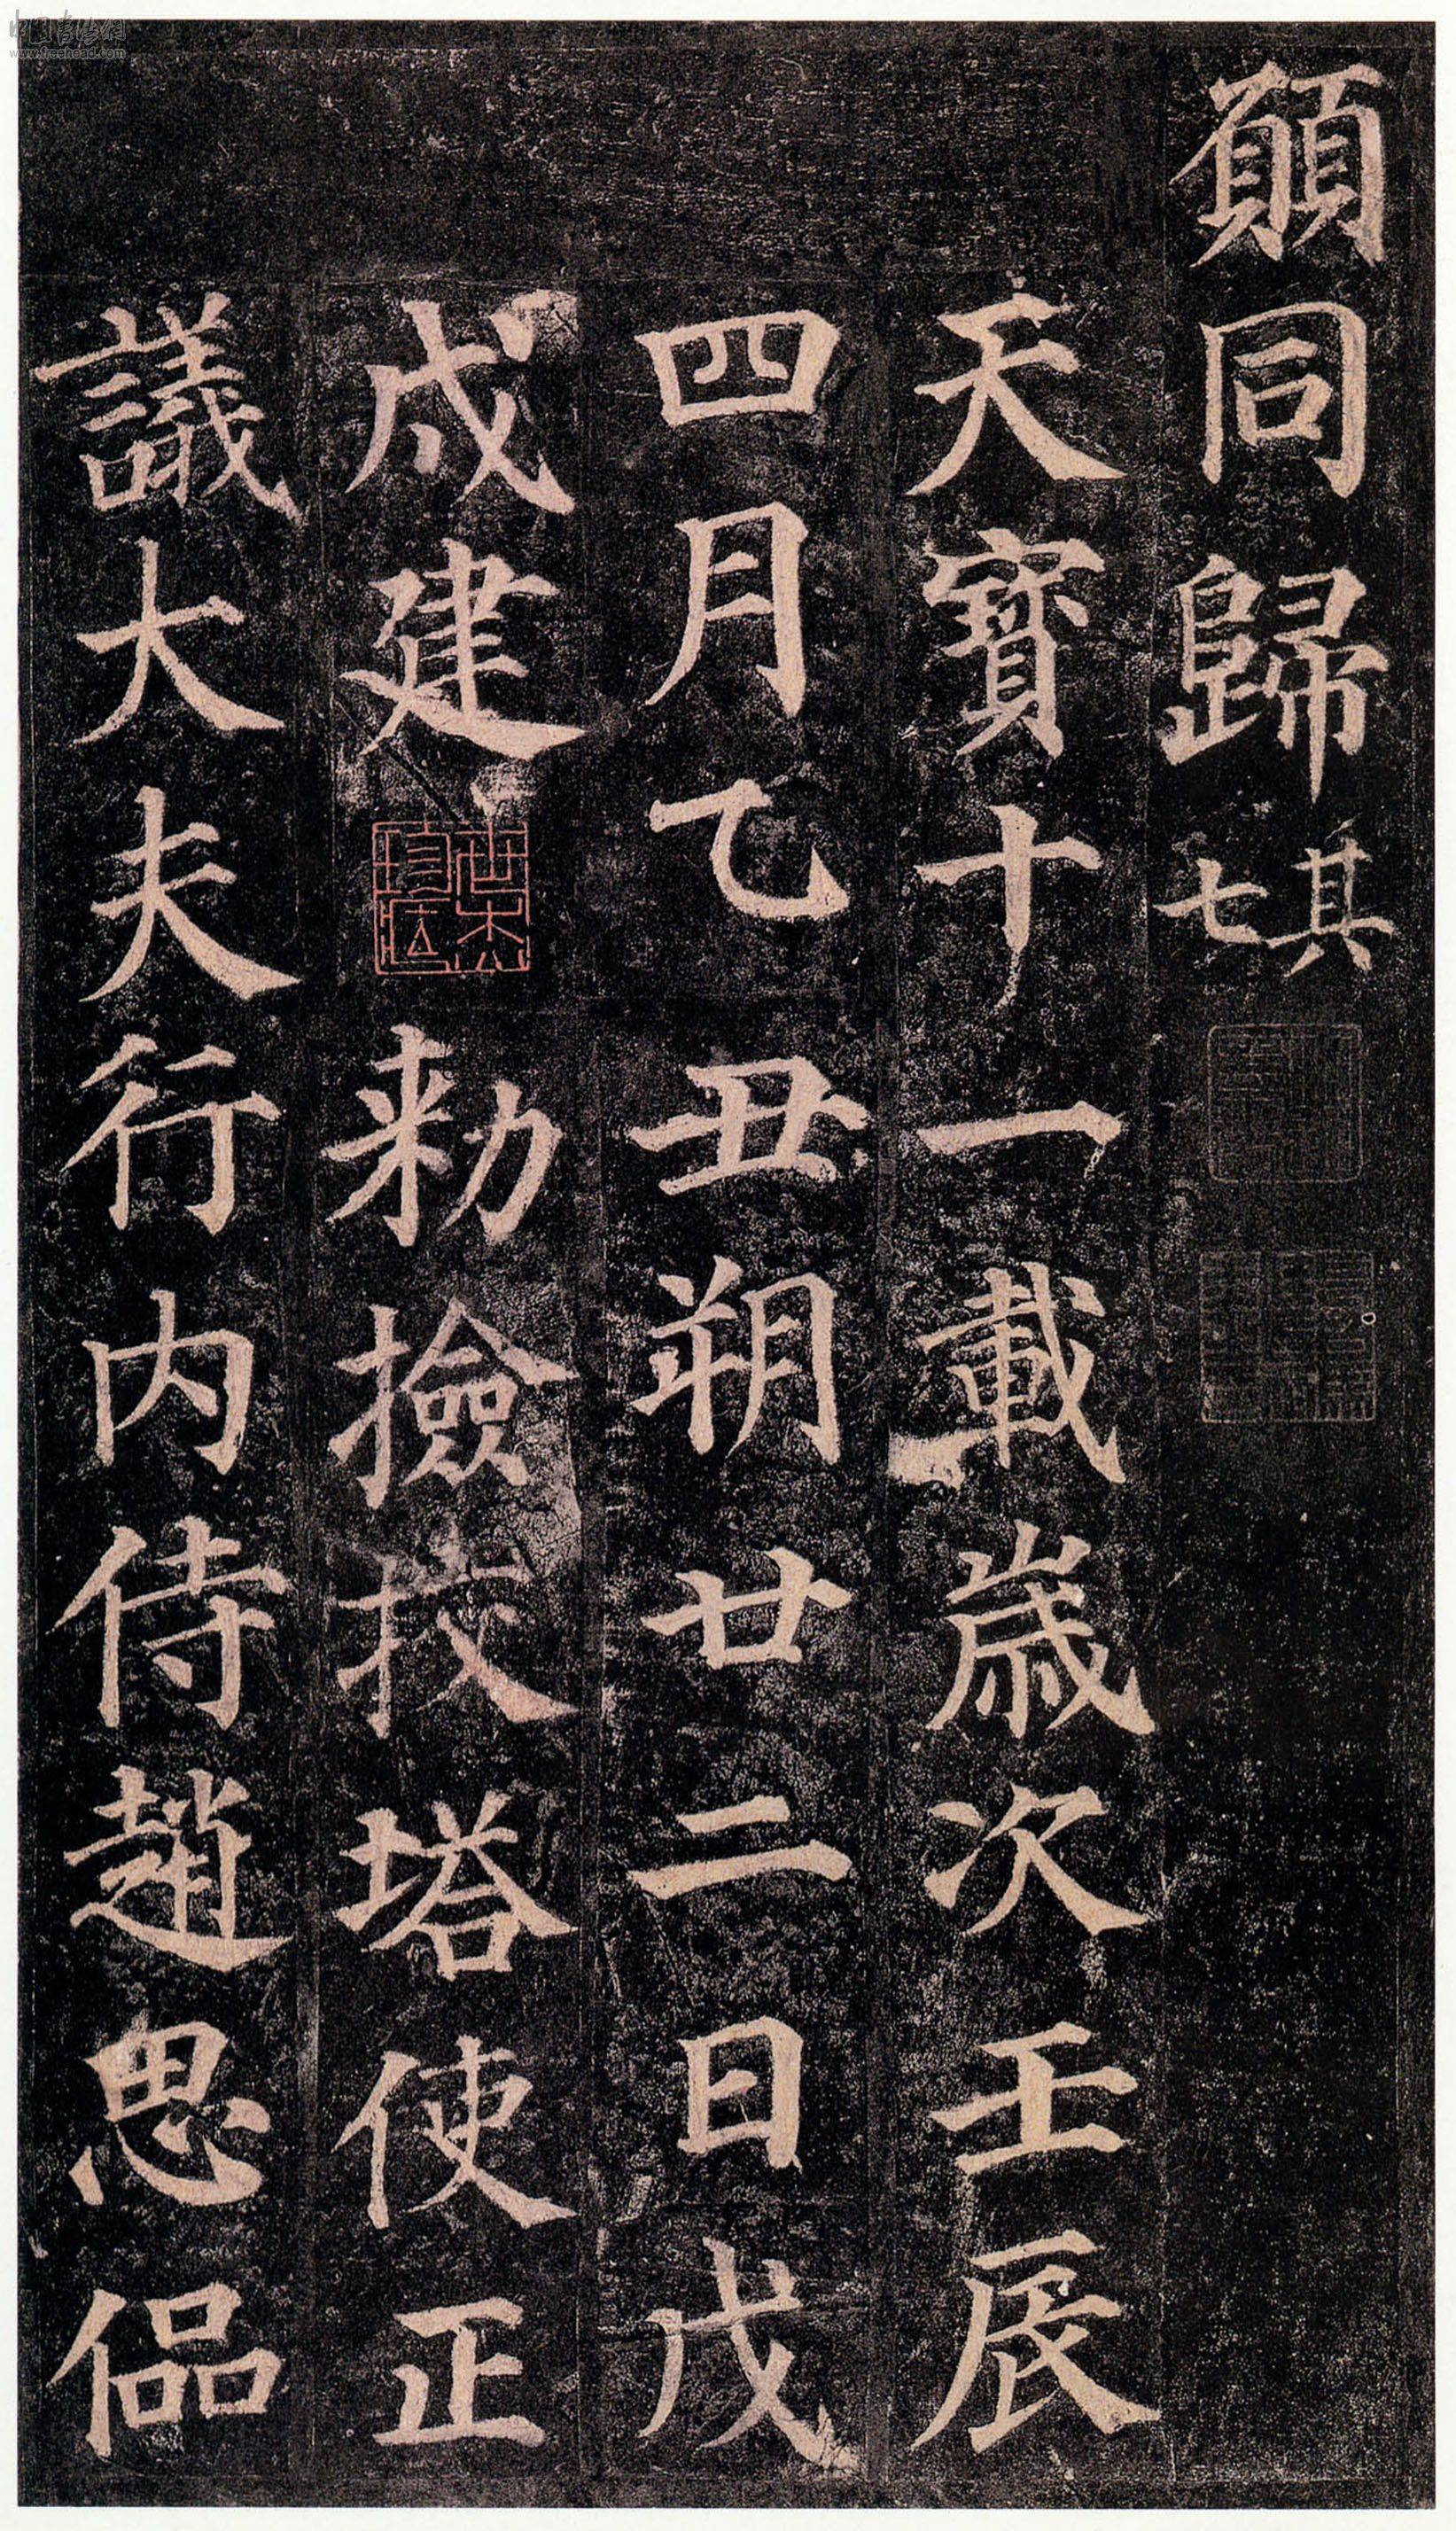 願同歸其七
天寶十一載歲次壬辰
四月乙丑朔廿二日戊
戍建勑撿挍塔使正
議大夫行内侍趙思侶
www.freehead.com